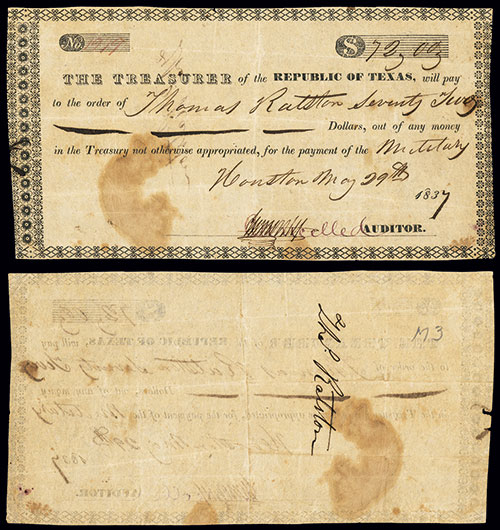 No.
$ 72,00
THE TREASURER of the REPUBLIC OF TEXAS, will pay
to the order of Thomas Ralston Seventy Two
Dollars, out of any money
in the Treasury not otherwise appropriated, for the payment of the Military
Houston May 29th
1837
AUDITOR.
Tho. Ralston
M3